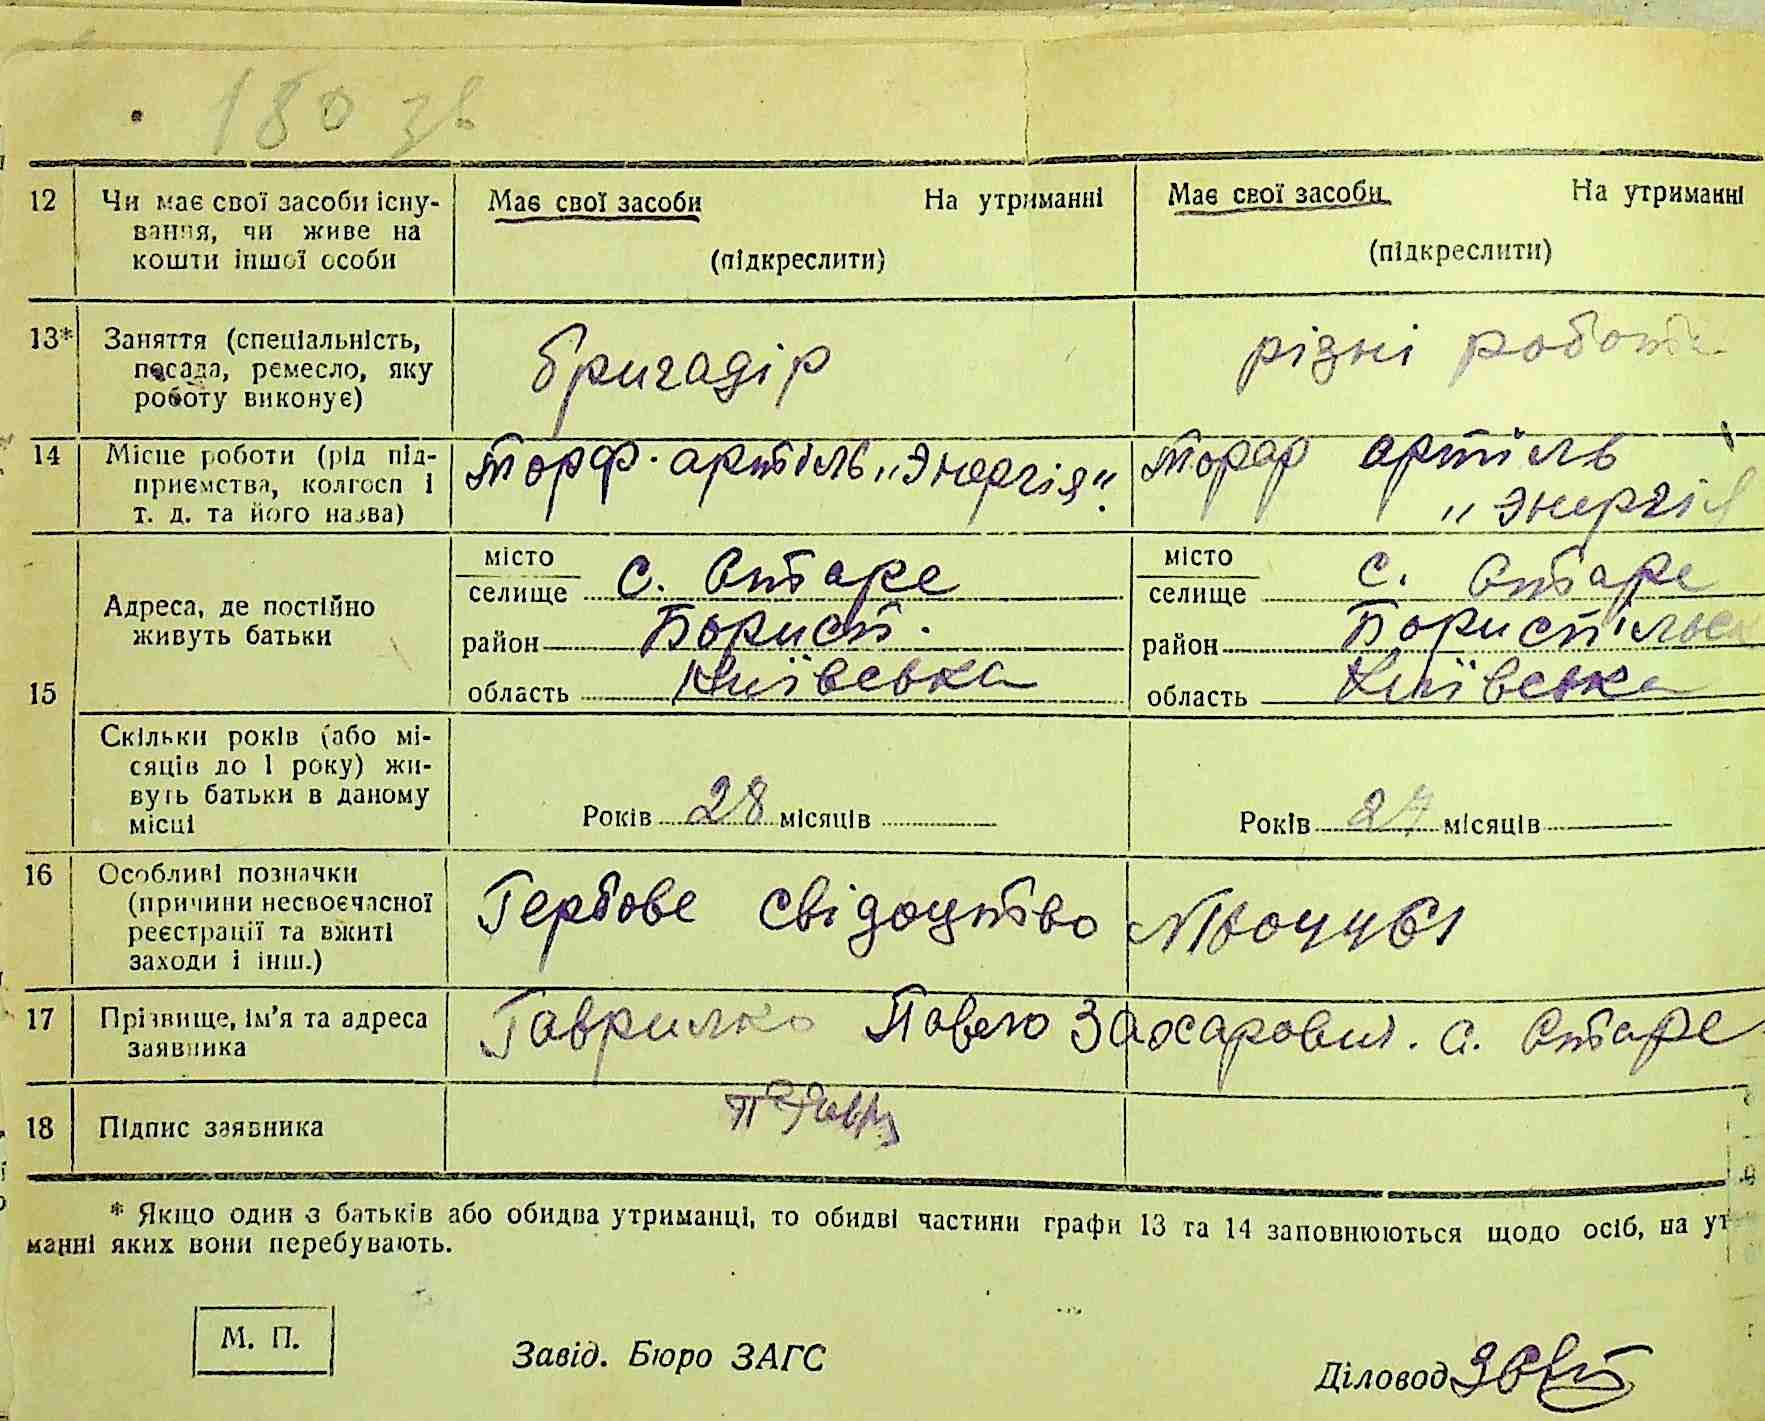 180 зв
12 Чи має свої засоби існу- Має свої засоби На утриманні Має свої засоби На утриманні
вання, чи живе на
кошти іншої особи (підкреслити) (підкреслити)
13* Заняття (спеціальність,
посада, ремесло, яку бригадір різні роботи
роботу виконує)
14 Місце роботи (рід під- Торф. артіль „Энергія". Торф артіль
приємства, колгосп і „Энергія
т. д. та його назва)
місто місто
селище с. Старе селище с. Старе
Адреса, де постійно
живуть батьки район Борисп. район Бориспільськ
15 область Київська область Київська
Скільки років (або мі-
сяців до 1 року) жи-
вуть батьки в даному Років 28 місяців Років 27 місяців
місці
16 Особливі позначки
(причини несвоєчасної Гербове свідоцтво
реєстрації та вжиті
заходи і інш.)
17 Прізвище, ім'я та адреса Гаврилко Павло Захарович. с. Старе
заявника
18 Підпис заявника
* Якщо один з батьків або обидва утриманці, то обидві частини графи 13 та 14 заповнюються щодо осіб, на ут
манні яких вони перебувають.
М. П.
Завід. Бюро ЗАГС
Діловод